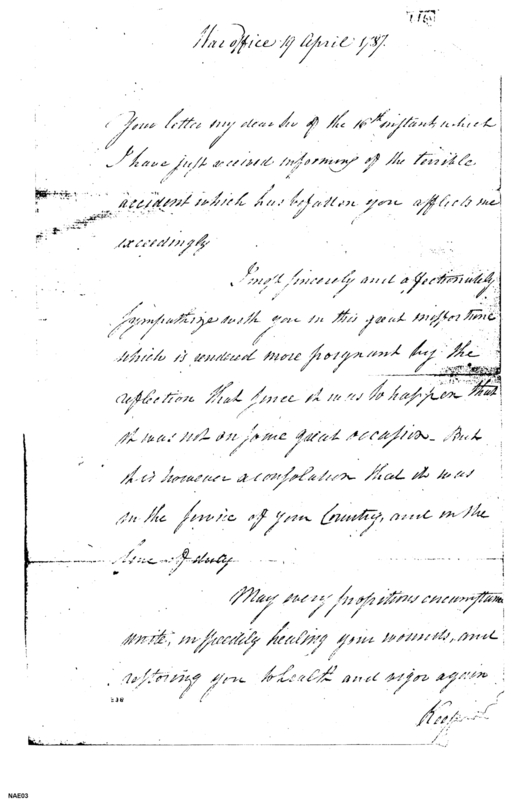 116
War office 19 April 1787.
Your letter my dear Sir of the 16th instant which
I have just received informing of the terrible
accident which has befallen you affects me
exceedingly
I most sincerely and affectionately
Sympathize with you in this great misfortune
which is rendered more poignant by the
reflection that since it was to happen that
it was not on some great occasion - But
it is however a consolation that it was
in the service of your Country, and in the
line of duty
May every propitious circumstance
unite, in speedily healing your wounds, and
restoring you to health and vigor again
Keep
NAE03